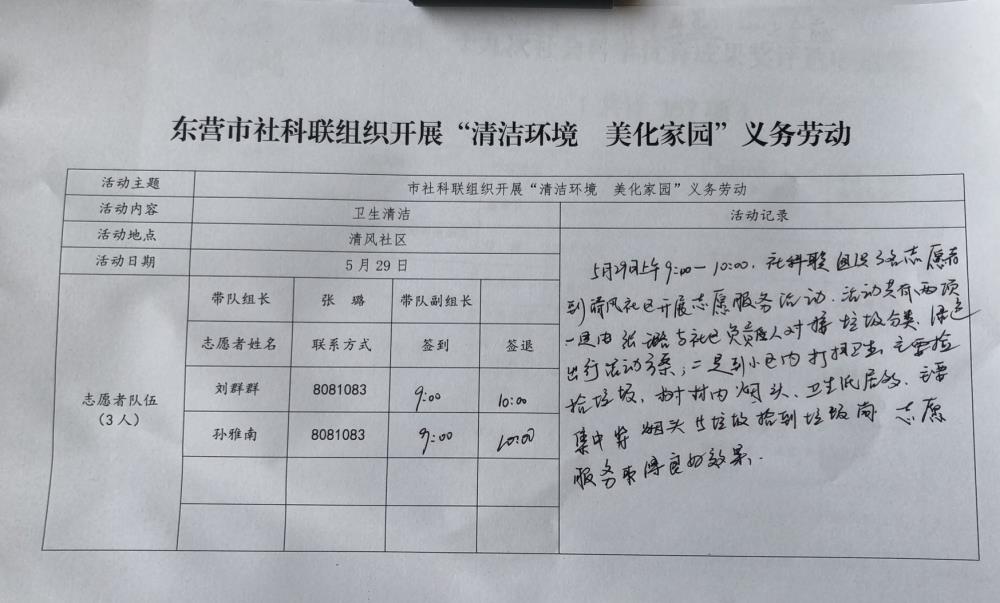 东营市社科联组织开展“清洁环境 美化家园”义务劳动
活动主题 市社科联组织开展“清洁环境 美化家园”义务劳动
活动内容 卫生清洁 活动记录
活动地点 清风社区
活动日期 5月29日
志愿者队伍
(3人)
带队组长 张 璐 带队副组长
志愿者姓名 联系方式 签到 签退
刘群群 8081083 9:00 10:00
孙雅南 8081083 9:00 10:00
5月29日上午9:00—10:00,社科联组织3名志愿者
到清风社区开展志愿服务活动.活动共有两项
一是由张璐与社区负责人对接垃圾分类、绿色
出行活动方案;二是到小区内打扫卫生,主要捡
拾垃圾,树内烟头、卫生死居的,主要
集中将烟头与垃圾捡到垃圾岗 志愿
服务取得良好效果.